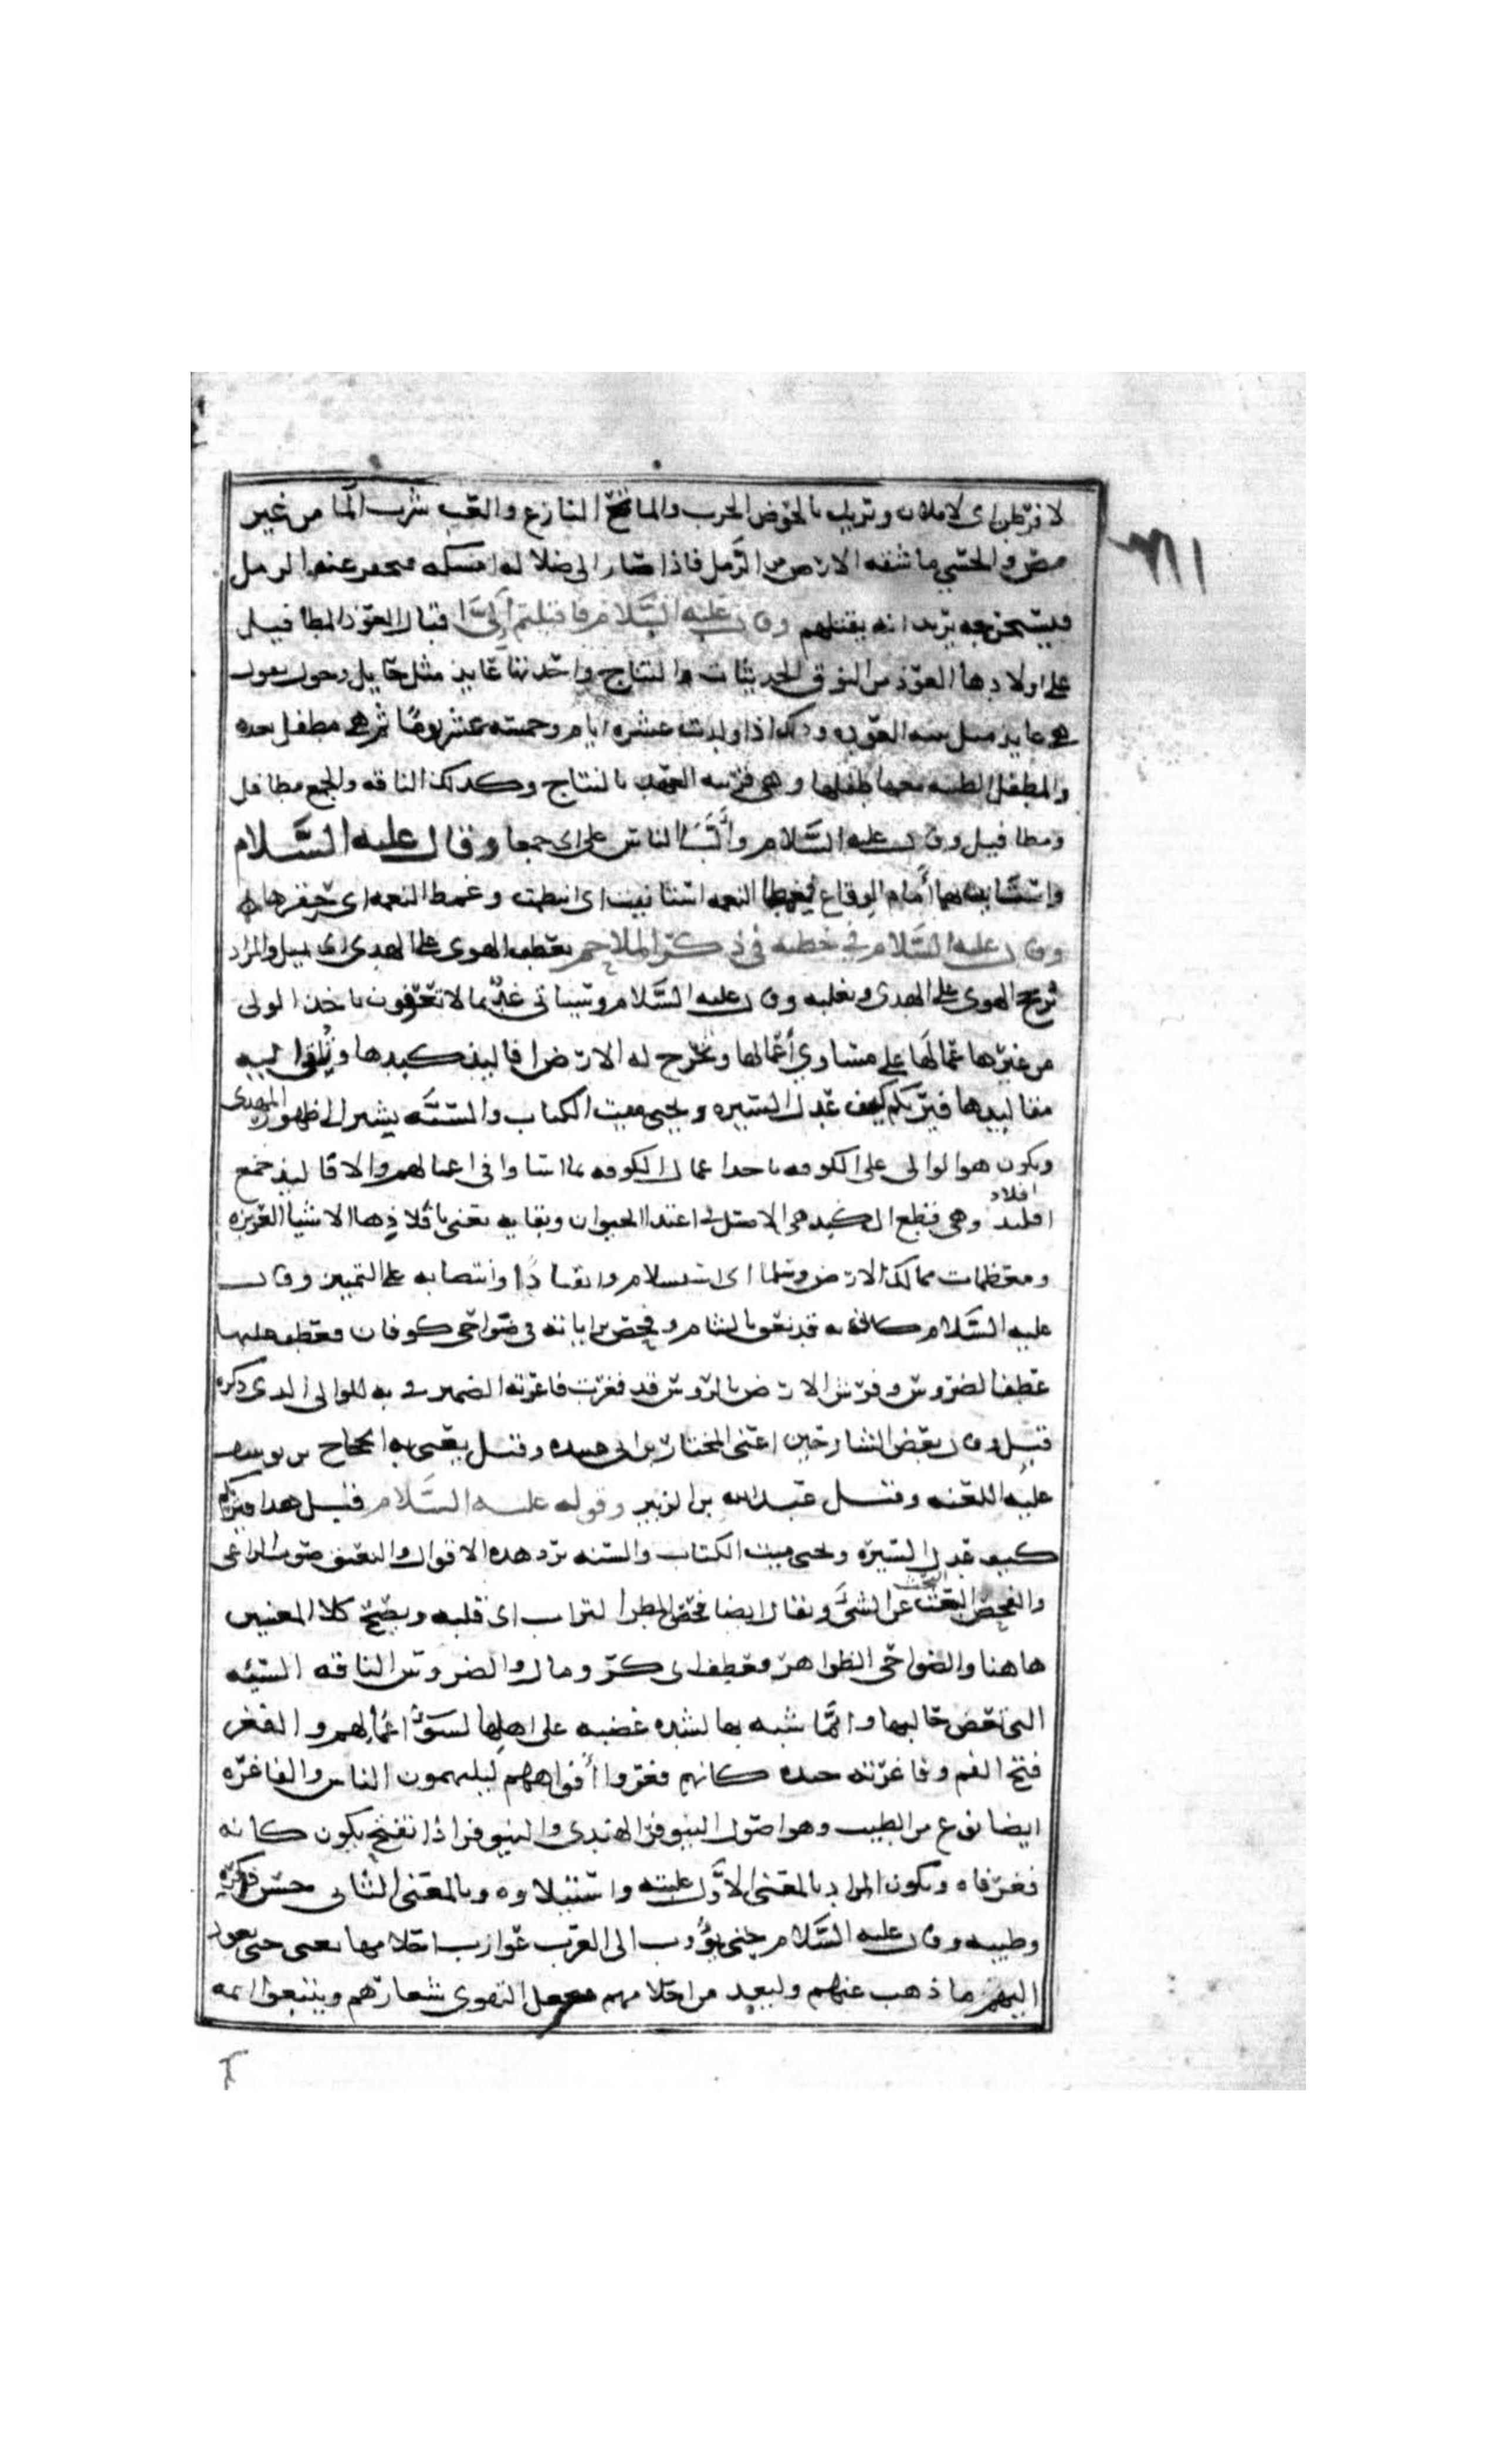 لا فرطن اى لاملان ويريد بالحوض الحرب والماتح النازع والعب شرب الما من غير
مص والحسي ما تنشفه الارض من الرمل فاذا صار الى صلابه امسكه فيحفر عنه الرمل
فيستخرجه يريد انه يقتلهم وقال عليه السلام فاقبلتم إليَّ اقبال العوذ المطافيل
على اولادها العوذ من النوق الحديثات النتاج واحدتها عايذ مثل حايل وحول يقول
هي عايذ بينه العوذ وذلك اذا ولدت عشره ايام وخمسه عشر يومًا ثم هى مطفل بعده
والمطفل الظبيه معها طفلها وهى قريبه العهد بالنتاج وكدلك الناقه والجمع مطافل
ومطافيل وقال عليه السلام وألّبا الناس على اى جمعا وقال عليه السَّلام
واستانيت بهما أمام الوقاع فغمطا النعمه استانيت اى انتظرت وغمط النعمه اى حقرها
وقال عليه السلام في خطبه في ذكر الملاحم يعطف الهوى على الهدى اى يميل والمراد
ترجح الهوى على الهدى ويغلبه وقال عليه السلام وسياتى غدٌ بما لا تعرفون ياخذ الوالى
من غيرها عمالها على مساوي أعمالها وتخرج له الارض افاليذ كبدها وتُلقى اليه
مقاليدها فيريكم كيف عدل السيره ويحيى ميت الكتاب والسنَّه يشير الى ظهور المهدى
ويكون هو الوالى على الكوفه ياخذ عمال الكوفه بما اساوا فى اعمالهم والافاليذ جمع
افليذ افلاد وهى قطع الكبد هى الاصل فى اغتدا الحيوان وبقايه يعنى بأفلاذها الاشيا العزيزه
ومعظمات ممالك الارض وسلما اى استسلام وانقيادًا وانتصابه على التمييز وقال
عليه السلام كانى به قد نعق بالشام وفحص براياته فى ضواحى كوفان فعطف عليها
عطف الضروس وفرش الارض بالرؤس قد فغرت فاغرته الضمير فى به للوالى الدى ذكره
قبل وقال بعض الشارحين اعنى المختار بن ابى عبيده وقيل يعنى به الحجاج بن يوسف
عليه اللعنه وقيل عبد الله بن الزبير وقوله عليه السَّلام قبل هدا فيريكم
كيف عدل السيره ويحيى ميت الكتاب والسنه يرد هده الاقوال والنعيق صوت الراعى
والفحص البحث عن الشئ ويقال ايضا فحص المطر التراب اى قلبه ويصح كلا المعنيين
هاهنا والضواحى الظواهر وعطف اى كرّ ومال والضروس الناقه السيئه
التى تعض حالبها وانَّما شبه بها لشده غضبه على اهلها لسوء اعمالهم والفغر
فتح الفم وفاغرته جنده كانهم فغروا أفواههم ليلهمون الناس والفاغره
ايضا نوع من الطيب وهو اصول النيوفر الهندى والنيوفر اذا تفتح يكون كانه
فغر فاه ويكون المراد بالمعنى الاول عليته واستيلاوه وبالمعنى الثانى حسن ذكره
وطيبه وقال عليه السلام حتى يؤوب الى العرب عوازب احلامها يعنى حتى يعود
اليهم ما ذهب عنهم ولبعد من احلامهم فيجعل التقوى شعارهم ويتبعوا ايمه